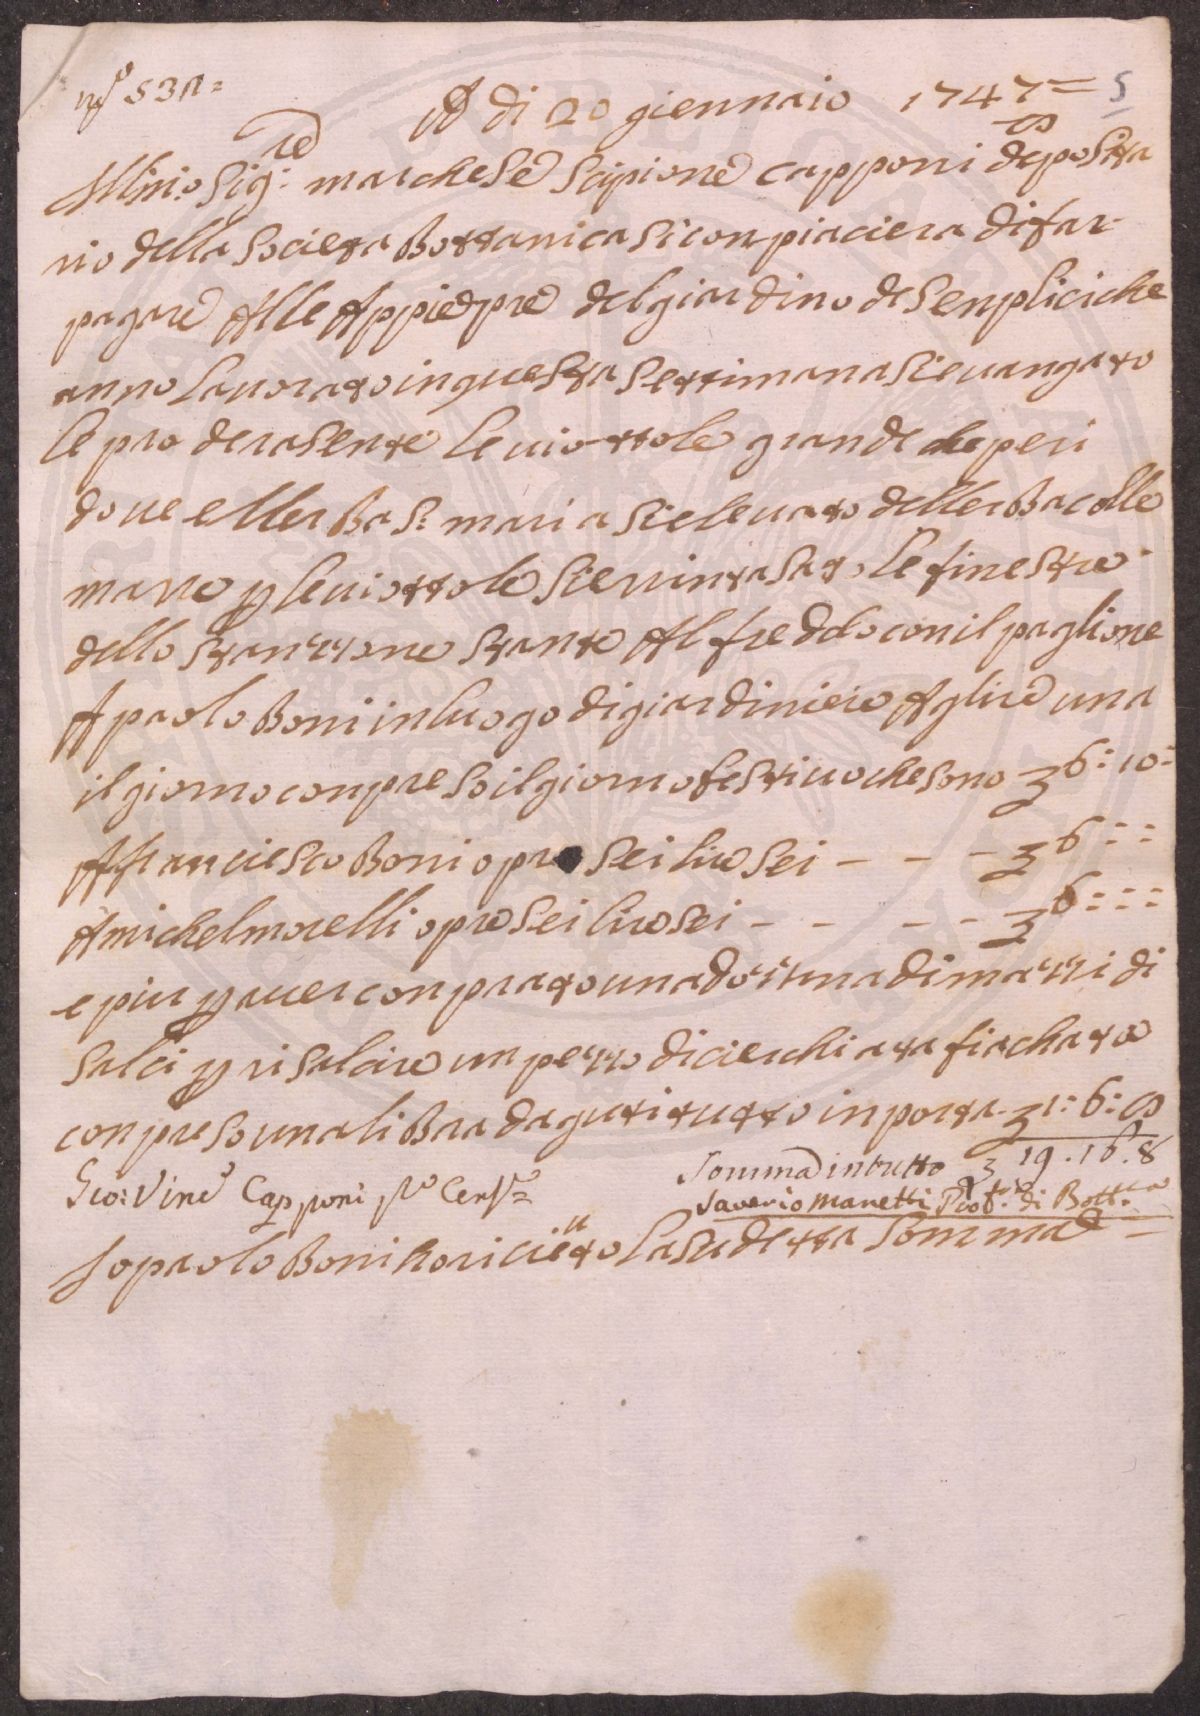 A di 20 giennaio 1747 5
Illmo Sig:re marchese Scipione Capponi deposita
rio della Societa Bottanica si conpiaciera di far
pagare Alle Appiedpre del giardino de Senplici che
anno Lavorato in questa settimana si e vangato
le pro de rasente le viottole grande de peri
dove e l lerba S: maria si e levato dellerba colle
mane p le viottole si e rinpasato le finestre
dello stanzzone stante Al freddo con il paglione
A paolo Boni in luogo di giardiniere A glire una
il giorno conpreso il giorno festivo che sono 6: 10:
A franciesco Boni opre sei lire sei - - - 6 : :
A michel morelli opre sei lire sei - - - - 6 : : :
e piu p aver conprato una dozzina di mazzi di
salci p risalcire un pezzo di cierchiata fiachata
conpreso una libra daguti tutto inporta 1: 6: 8
Somma in tutto 19. 16. 8
Vinc Capponi
Saverio Manetti Prof.re di Bott.ca
Io paolo Boni ho riciëuto la su detta somma